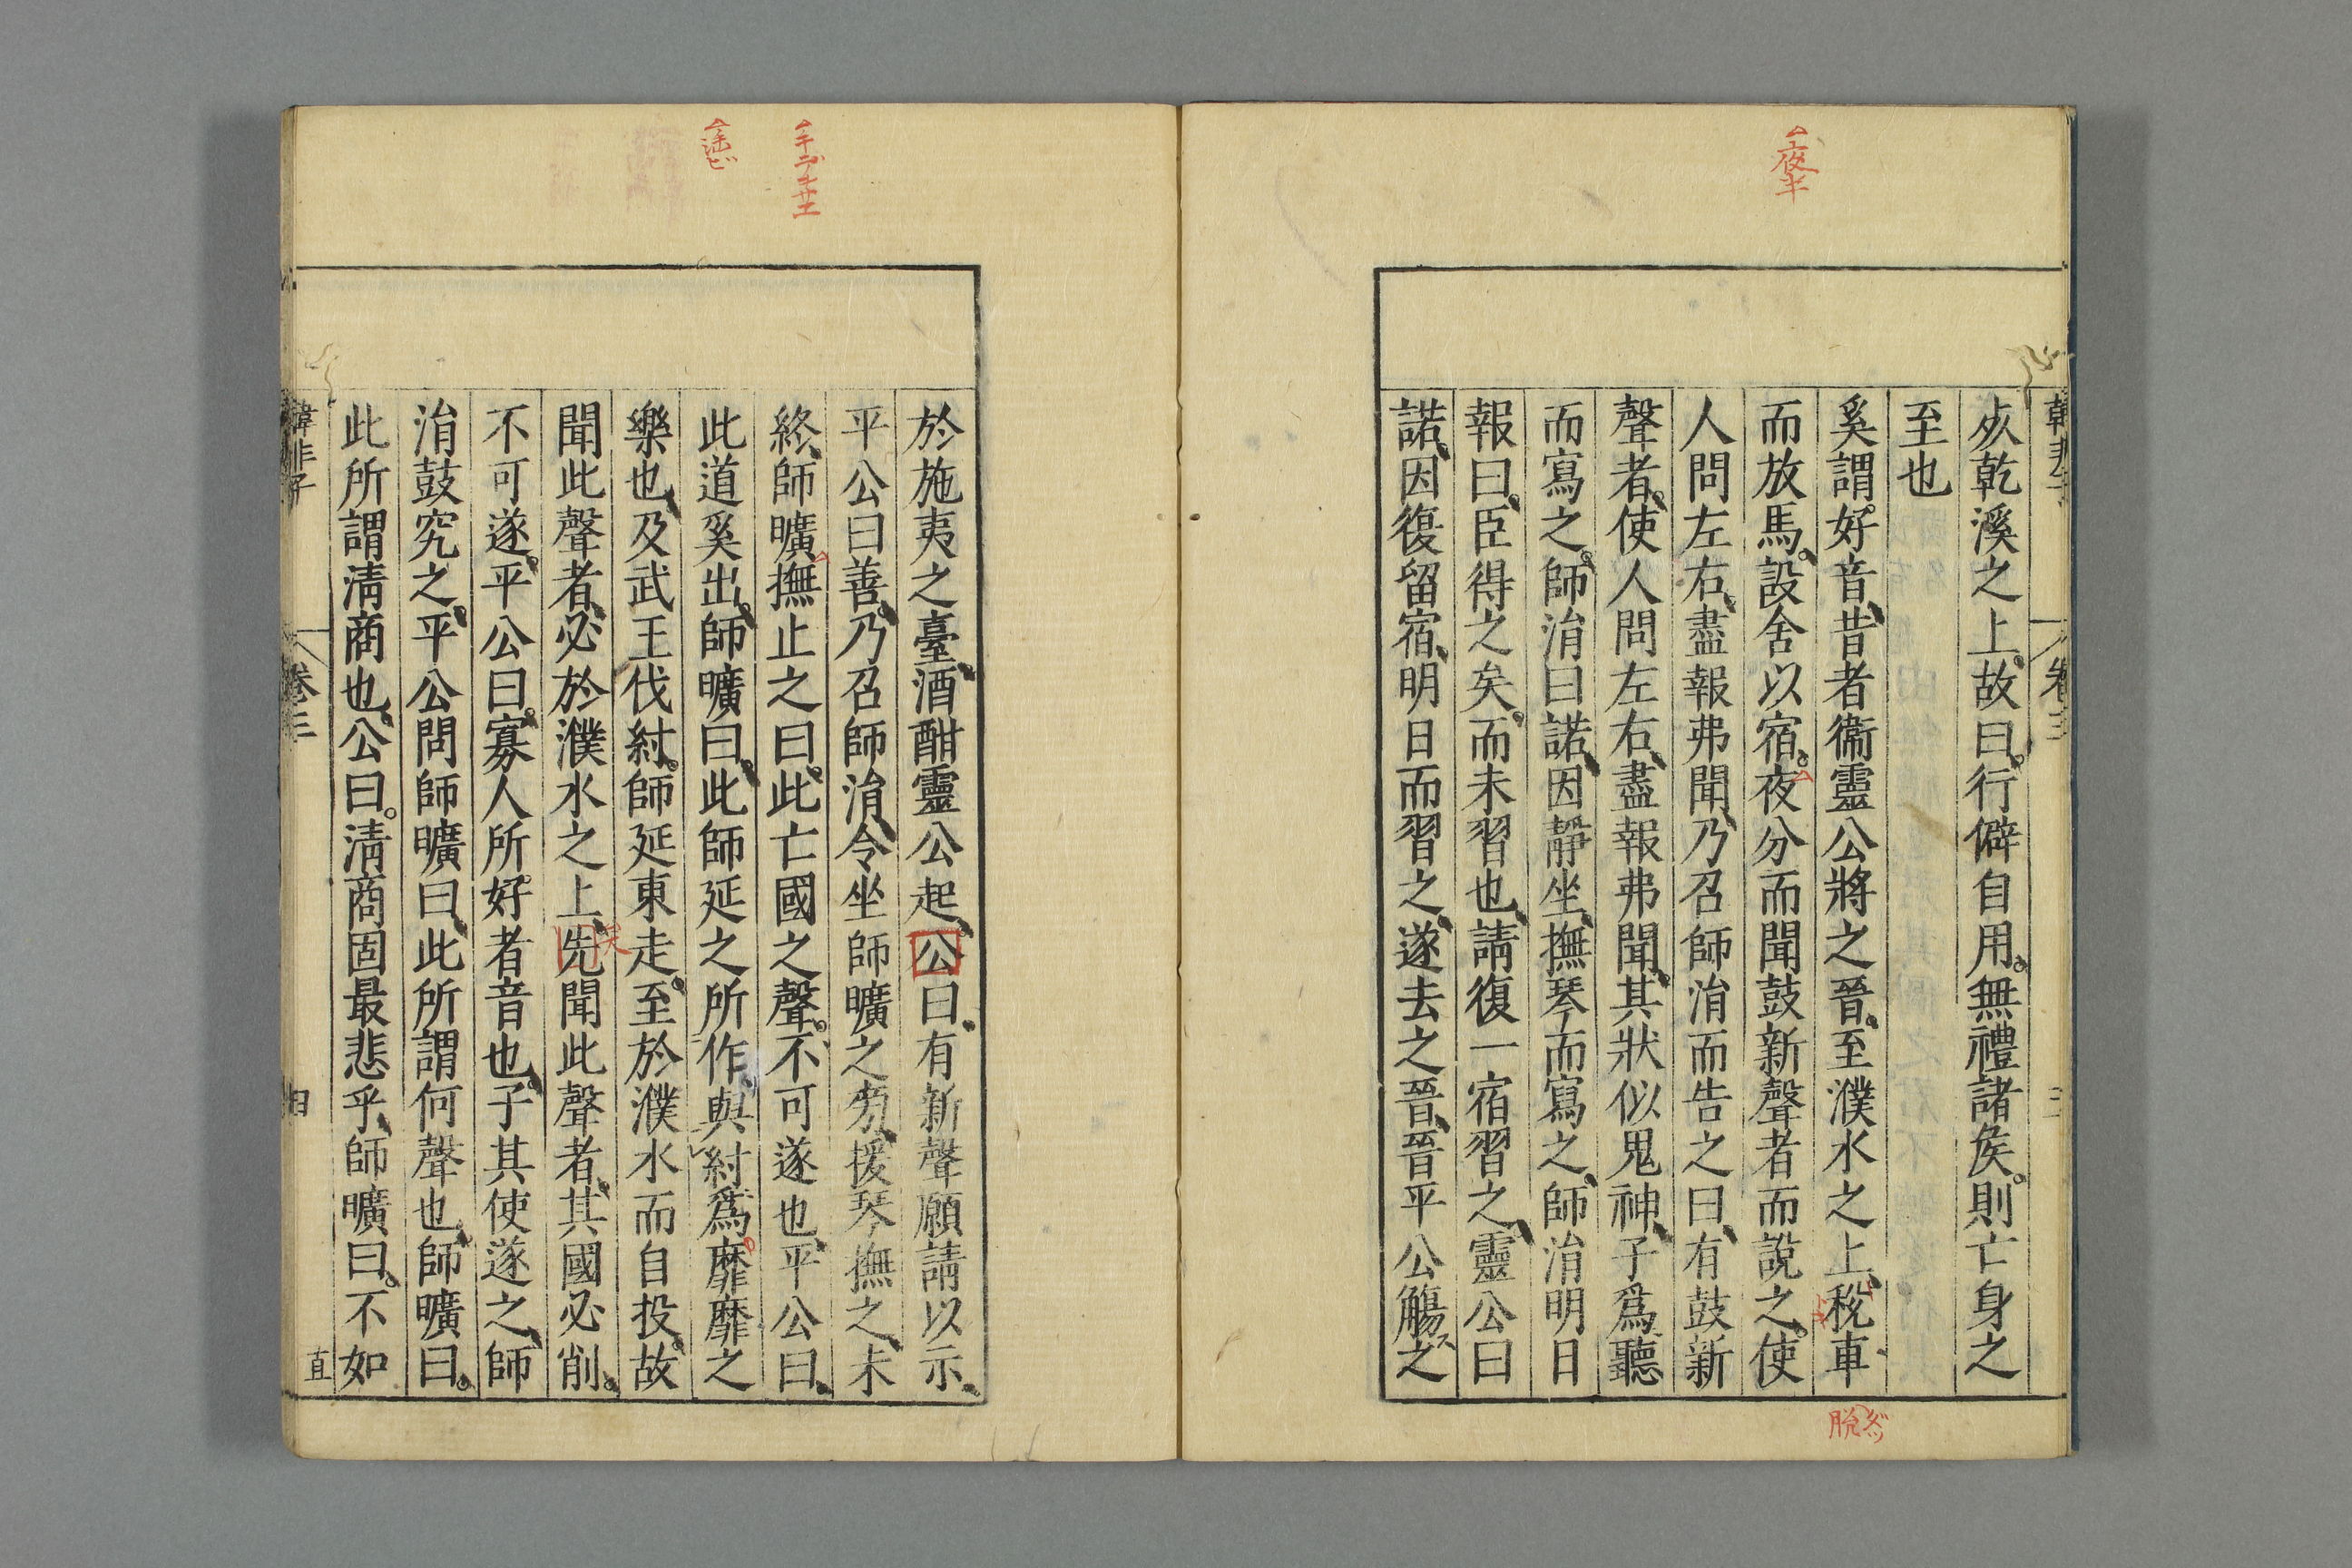 夜半
韓非子
卷三
三
死乾溪之上。故曰。行僻自用。無禮諸侯。則亡身之
至也
奚謂好音、昔者衞靈公將之晉、至濮水之上、稅車
而放馬。設舍以宿。夜分而聞鼓新聲者而說之。使
人問左右。盡報弗聞、乃召師涓而告之曰、有鼓新
聲者。使人問左右、盡報弗聞。其狀似鬼神、子爲聽
而寫之。師涓曰諾、因靜坐、撫琴而寫之。師涓明日
報曰、臣得之矣。而未習也、請復一宿習之、靈公曰
諾、因復留宿、明日而習之、遂去之晉、晉平公觴ス之
脫
於施夷之臺、酒酣靈公起、公曰。有新聲願請以示。
平公曰善。乃召師涓、令坐師曠之旁、援琴撫之、未
終、師曠撫止之曰。此亡國之聲。不可遂也、平公曰、
此道奚出。師曠曰、此師延之所作、與紂爲靡靡之
樂也、及武王伐紂。師延東走。至於濮水而自投、故
聞此聲者、必於濮水之上、先聞此聲者、其國必削。
不可遂。平公曰。寡人所好者音也、子其使遂之、師
涓鼓究之。平公問師曠曰、此所謂何聲也、師曠曰。
此所謂清商也、公曰。清商固最悲乎、師曠曰。不如
韓非子
卷三
直